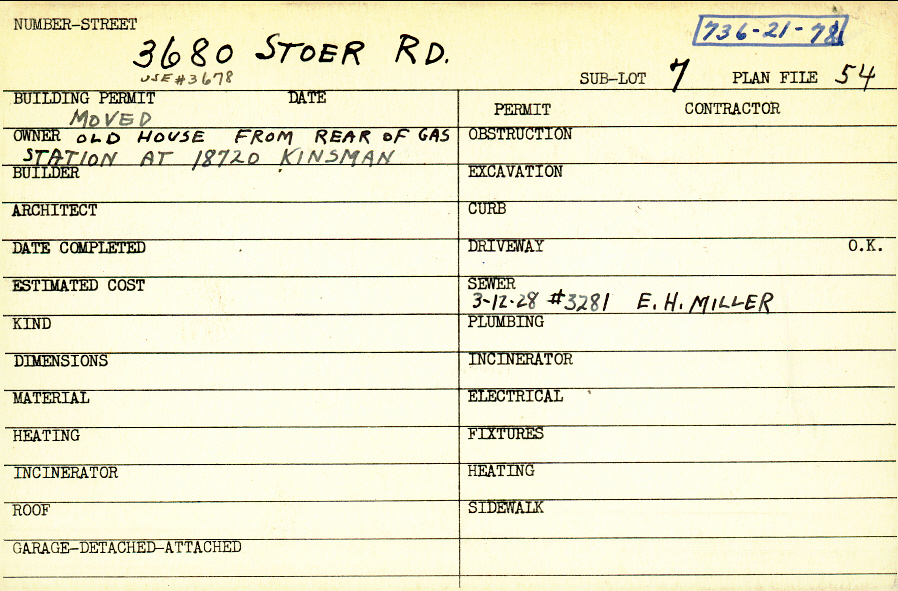 NUMBER-STREET
3680 STOER RD.
USE #3678
736-21-78
SUB-LOT 7 PLAN FILE 54
BUILDING PERMIT DATE
MOVED
OWNER OLD HOUSE FROM REAR OF GAS
STATION AT 18720 KINSMAN
BUILDER
ARCHITECT
DATE COMPLETED
ESTIMATED COST
KIND
DIMENSIONS
MATERIAL
HEATING
INCINERATOR
ROOF
GARAGE-DETACHED-ATTACHED
PERMIT CONTRACTOR
OBSTRUCTION
EXCAVATION
CURB
DRIVEWAY O.K.
SEWER
3-12-28 #3281 E. H. MILLER
PLUMBING
INCINERATOR
ELECTRICAL
FIXTURES
HEATING
SIDEWALK